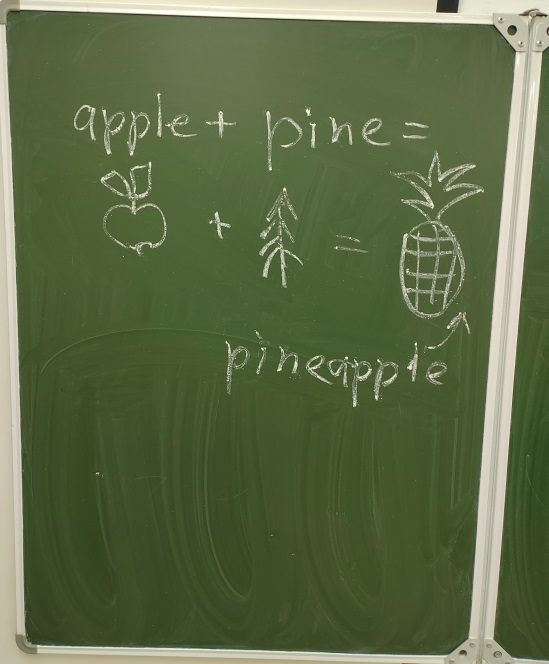 apple + pine =
+ =
pineapple